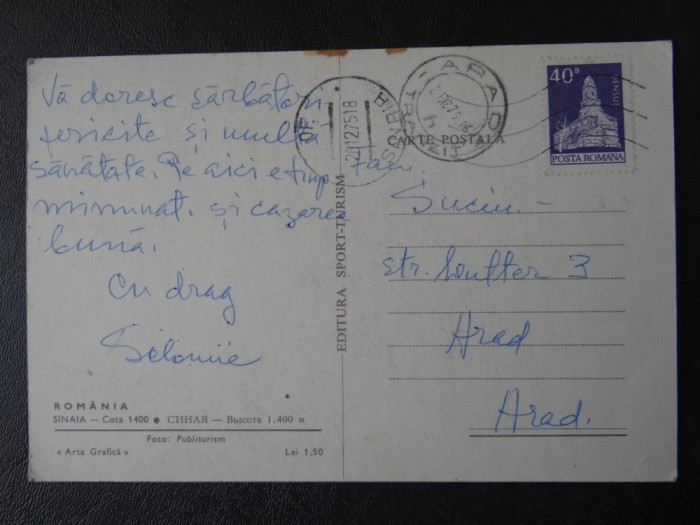 Vă doresc sărbători
fericite și multă
sănătate. Pe aici e timp
minunat. și cazarea
bună.
Cu drag
ROMÂNIA
SINAIA — Cota 1400 ● СИНАЯ — Высота 1.400 м
Foto: Publiturism
« Arta Grafică » Lei 1,50
EDITURA SPORT-TURISM
SINAIA
28127518
ARAD
CARTE POȘTALĂ
40 B
DENSUȘ
POSTA ROMANA
Fam.
Suciu. -
str. 3
Arad
Arad.